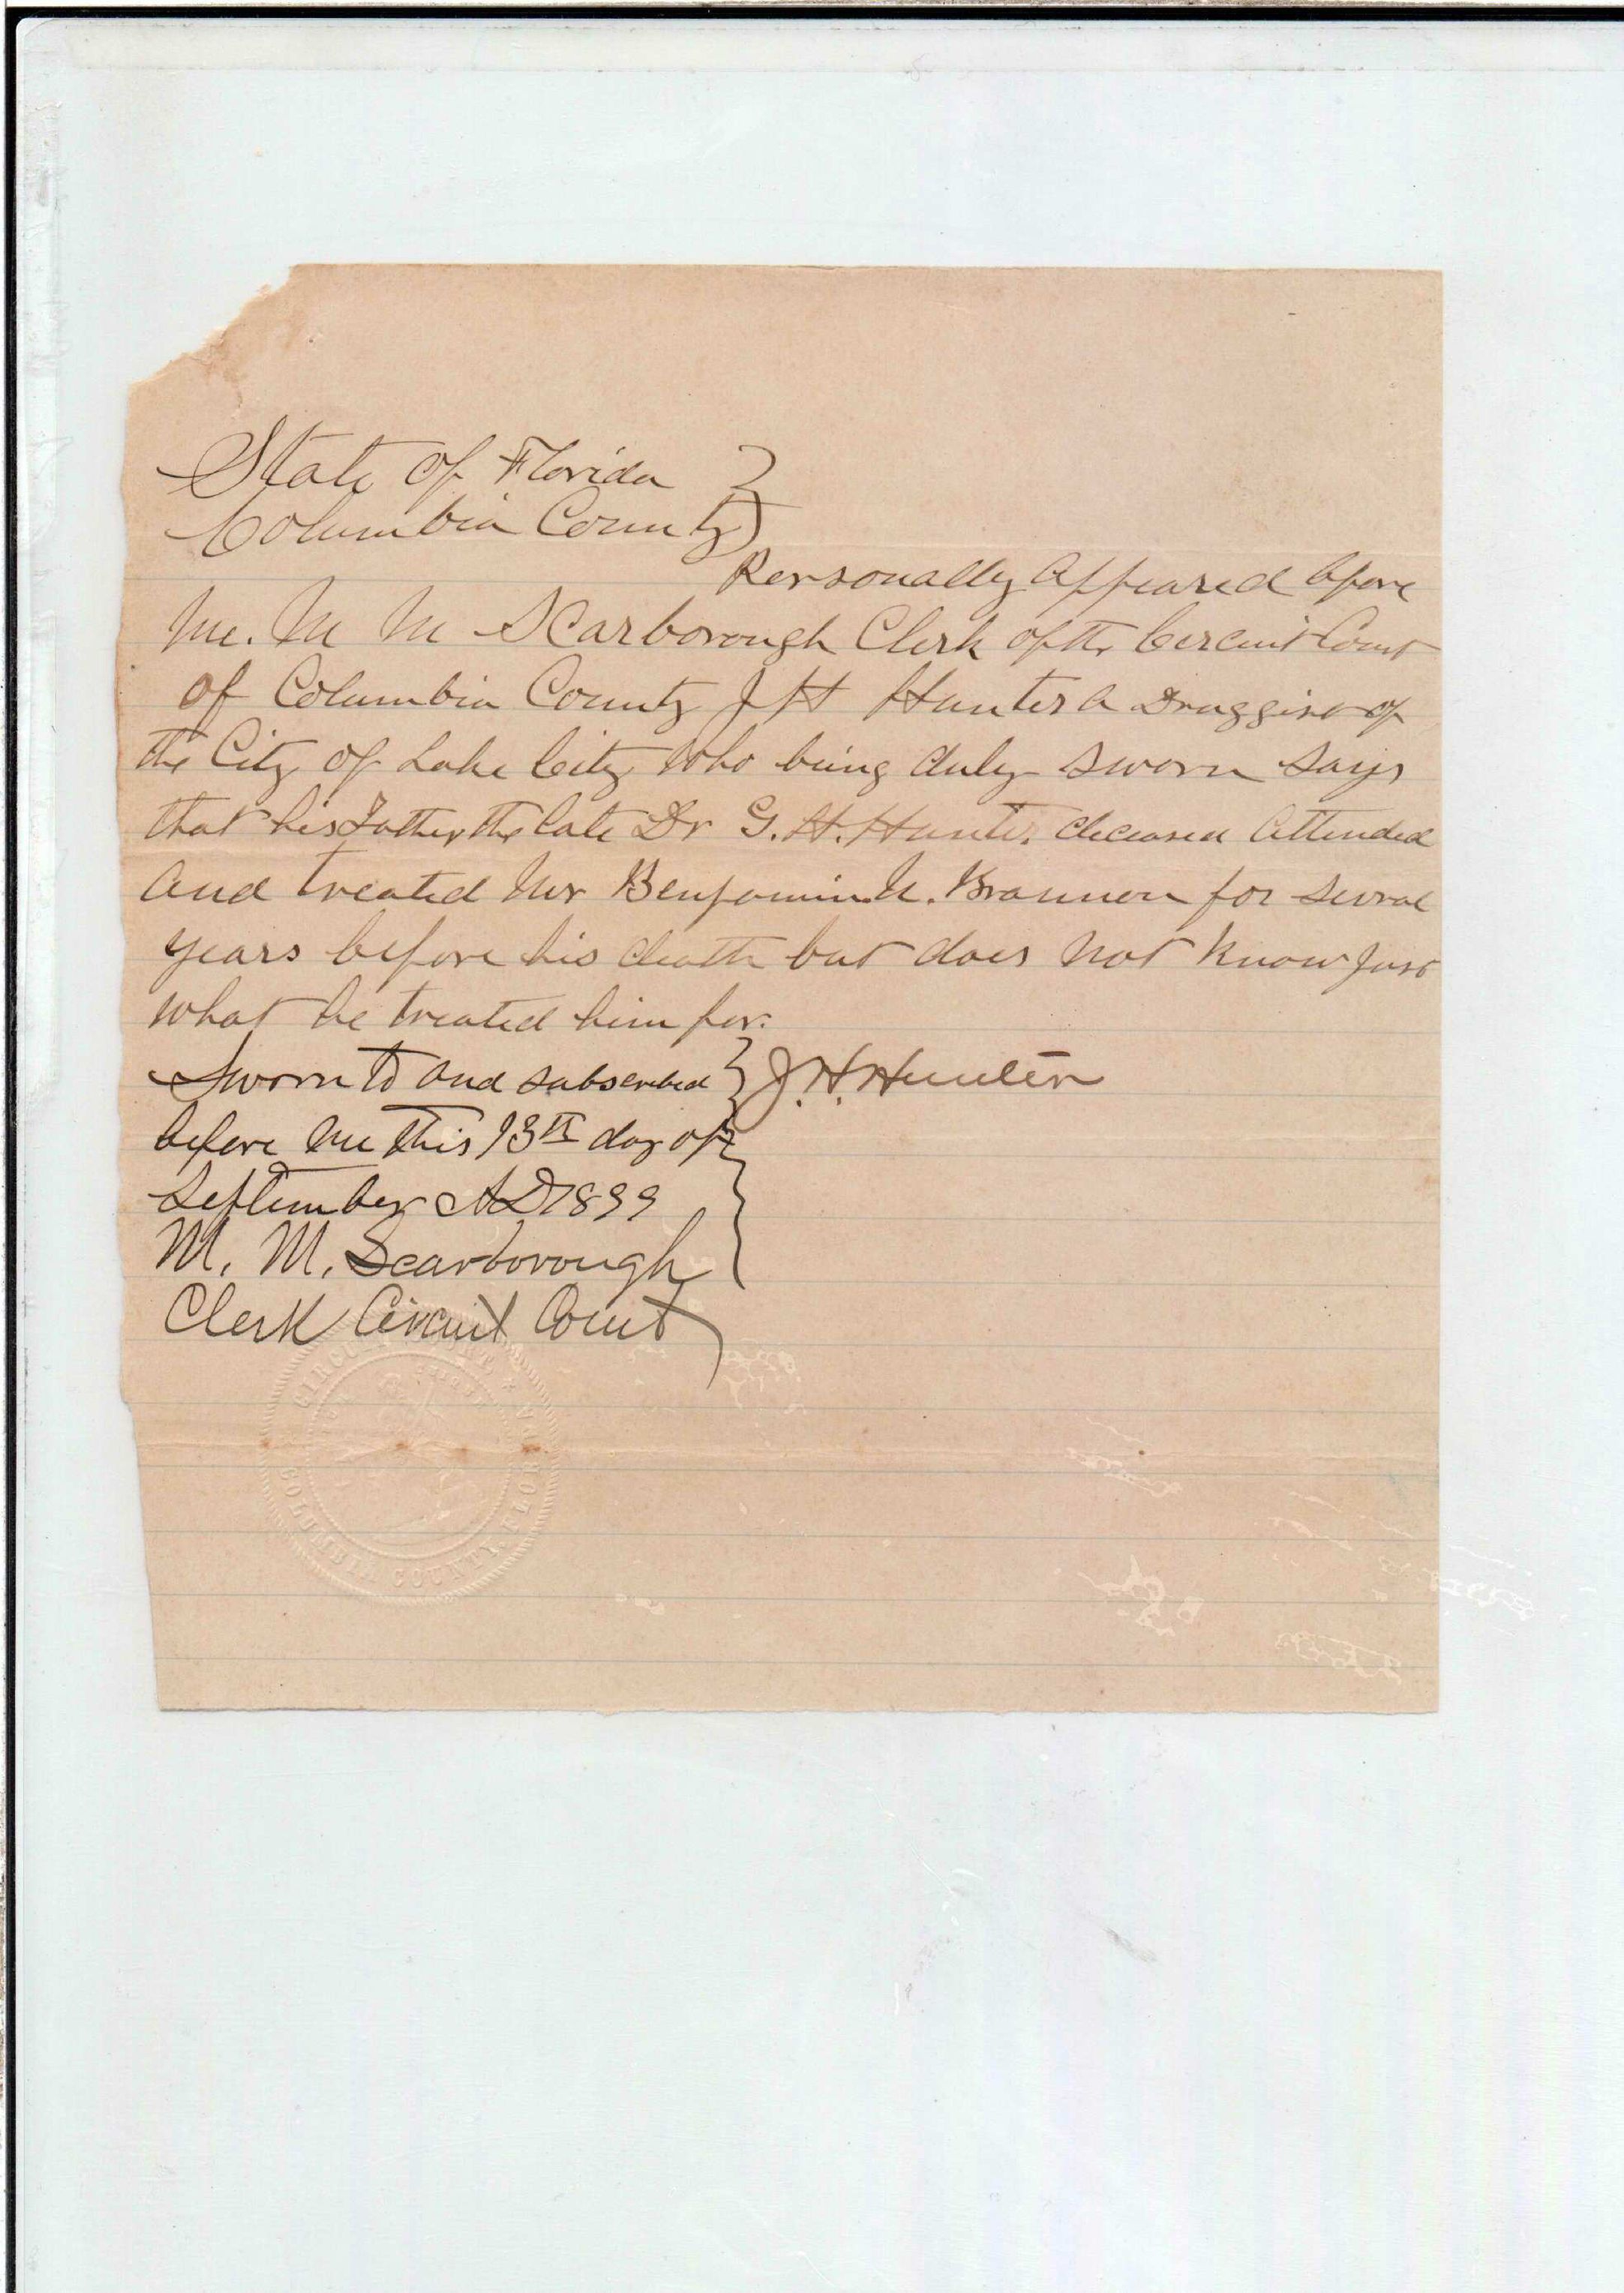 State of Florida }
Columbia County }
Personally Appeared before
me. M M Scarborough Clerk of the Circuit Court
of Columbia County J H Hunter a Druggist of
the City of Lake City who being duly sworn says
that his Father the late Dr G. H. Hunter deceased Attended
and treated Mr Benjamin N. Brannen for several
years before his death but does not know just
what he treated him for.
Sworn to and subscribed } J. H. Hunter
before me this 13th day of
September AD 1899
M. M. Scarborough
Clerk Circuit Court
CIRCUIT COURT
COLUMBIA COUNTY, FLORIDA